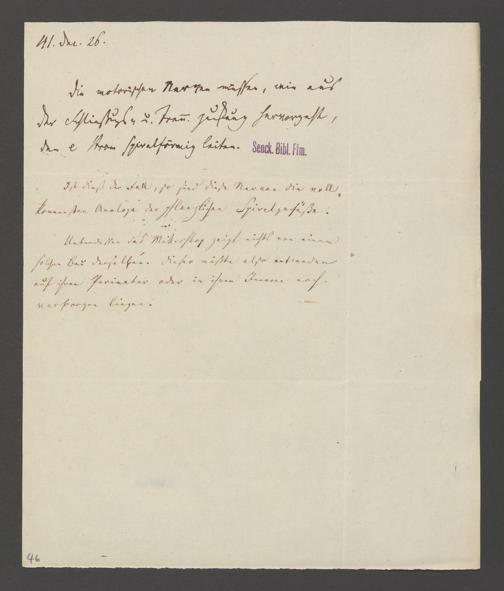 41. Dec. 26.
Die motorischen Nerven müssen, wie aus
der Schließungs- u. Trenn. zuckung hervorgeht,
den e Strom spiralförmig leiten.
Senck. Bibl. Ffm.
Ist dieß der Fall, so sind diese Nerven die voll-
kommensten Analoga der pflanzlichen Spiralgefäße.
Unterdessen das Mikroskop zeigt nichts von einem
solchen Bau derselben. Dieser müßte also entweder
auf ihrem Perimeter oder in ihrem Innern noch
verborgen liegen.
46